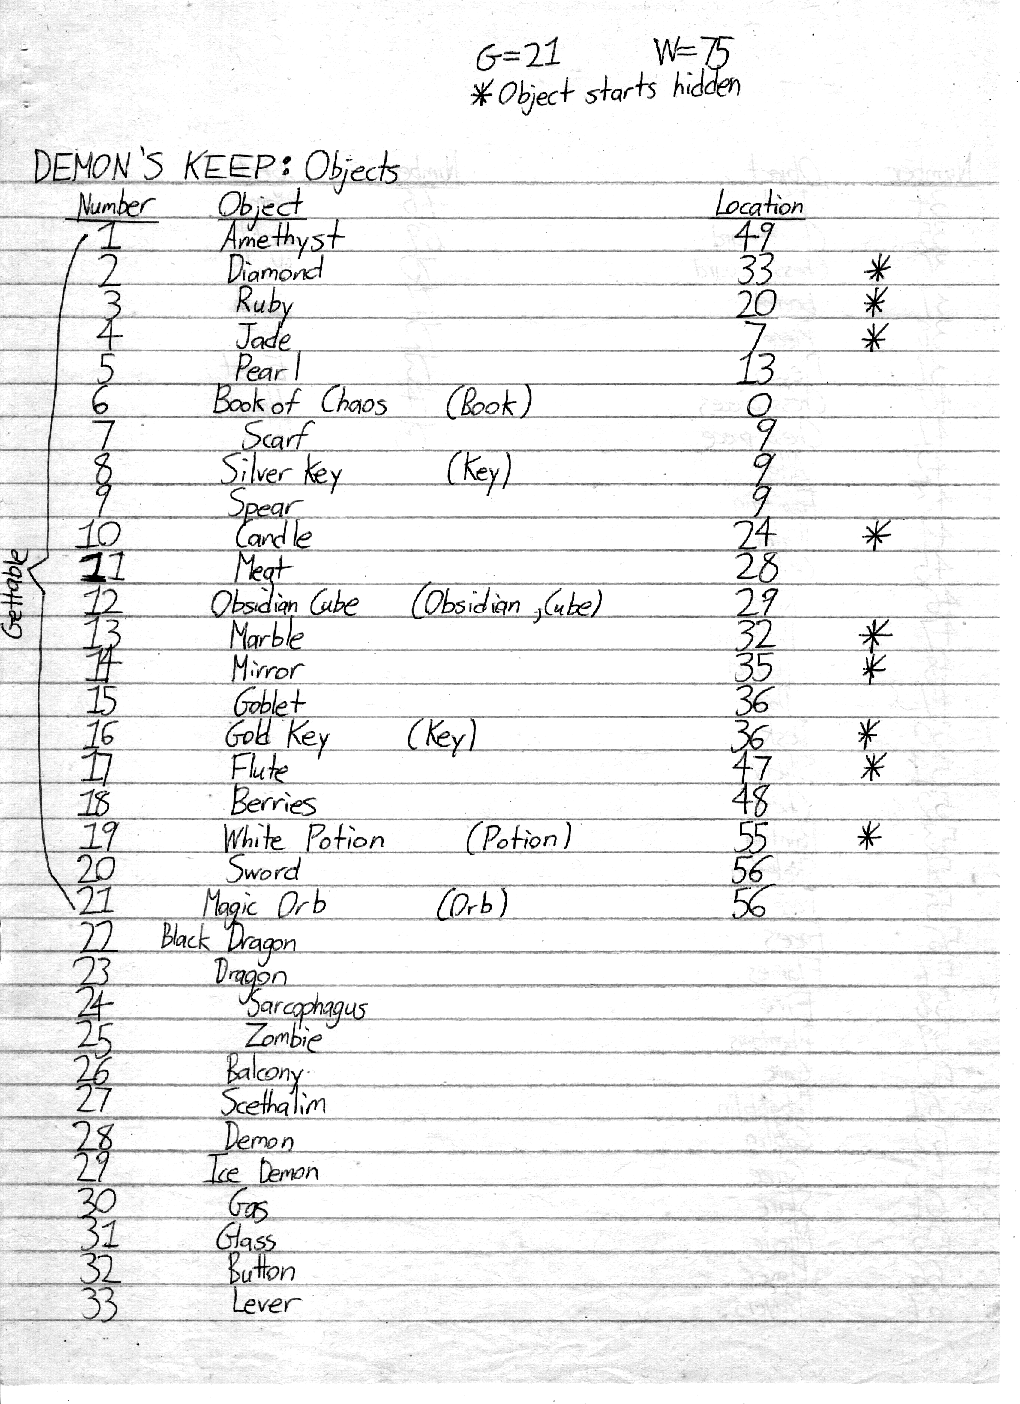 G=21 W=75
*Object starts hidden
DEMON'S KEEP: Objects
Number Object Location
1 Amethyst 49
2 Diamond 33 *
3 Ruby 20 *
4 Jade 7 *
5 Pearl 13
6 Book of Chaos (Book) 0
7 Scarf 9
8 Silver Key (Key) 9
9 Spear 9
10 Candle 24 *
11 Meat 28
12 Obsidian Cube (Obsidian, Cube) 29
13 Marble 32 *
14 Mirror 35 *
15 Goblet 36
16 Gold Key (Key) 36 *
17 Flute 47 *
18 Berries 48
19 White Potion (Potion) 55 *
20 Sword 56
21 Magic Orb (Orb) 56
Gettable
22 Black Dragon
23 Dragon
24 Sarcophagus
25 Zombie
26 Balcony
27 Scethalim
28 Demon
29 Ice Demon
30 Gas
31 Glass
32 Button
33 Lever